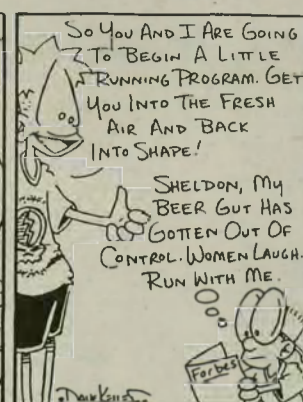 So You And I Are Going
To Begin A Little
Running Program. Get
You Into The Fresh
Air And Back
Into Shape!
Sheldon, My
Beer Gut Has
Gotten Out Of
Control. Women Laugh.
Run With Me.
Forbes